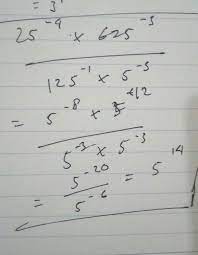 = 3
25⁻⁴ × 625⁻³
125⁻¹ × 5⁻³
= 5⁻⁸ × 5⁻¹²
5⁻³ × 5⁻³
= 5⁻²⁰ / 5⁻⁶ = 5¹⁴